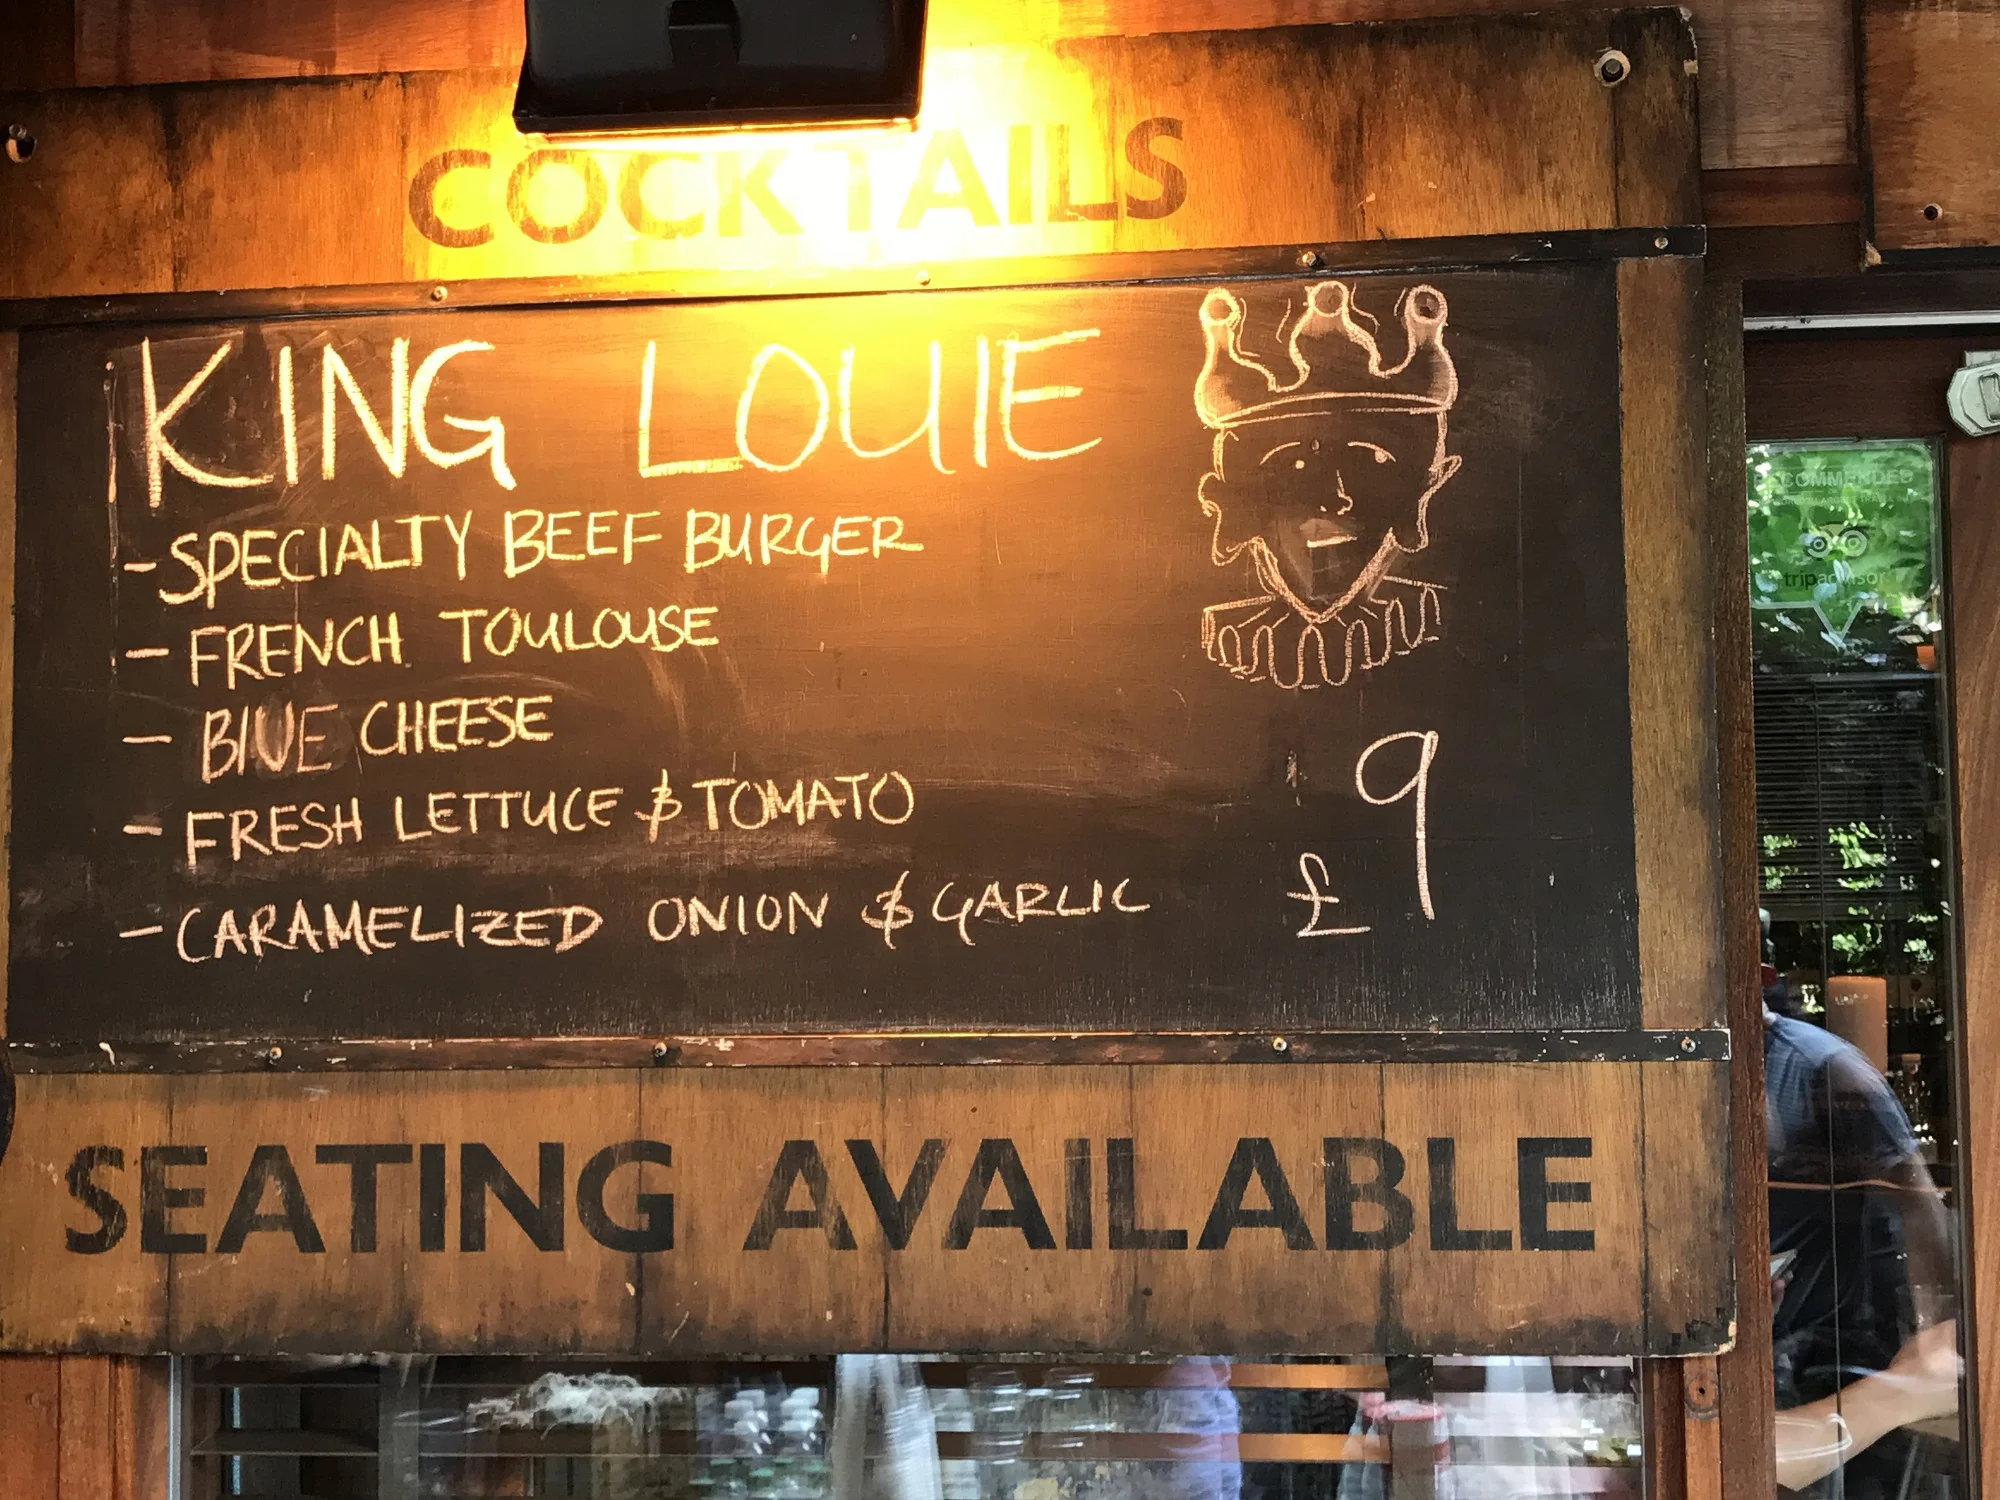 COCKTAILS
KING LOUIE
- SPECIALTY BEEF BURGER
- FRENCH TOULOUSE
- BLUE CHEESE
- FRESH LETTUCE & TOMATO
- CARAMELIZED ONION & GARLIC
£9
SEATING AVAILABLE
RECOMMENDED
tripadvisor